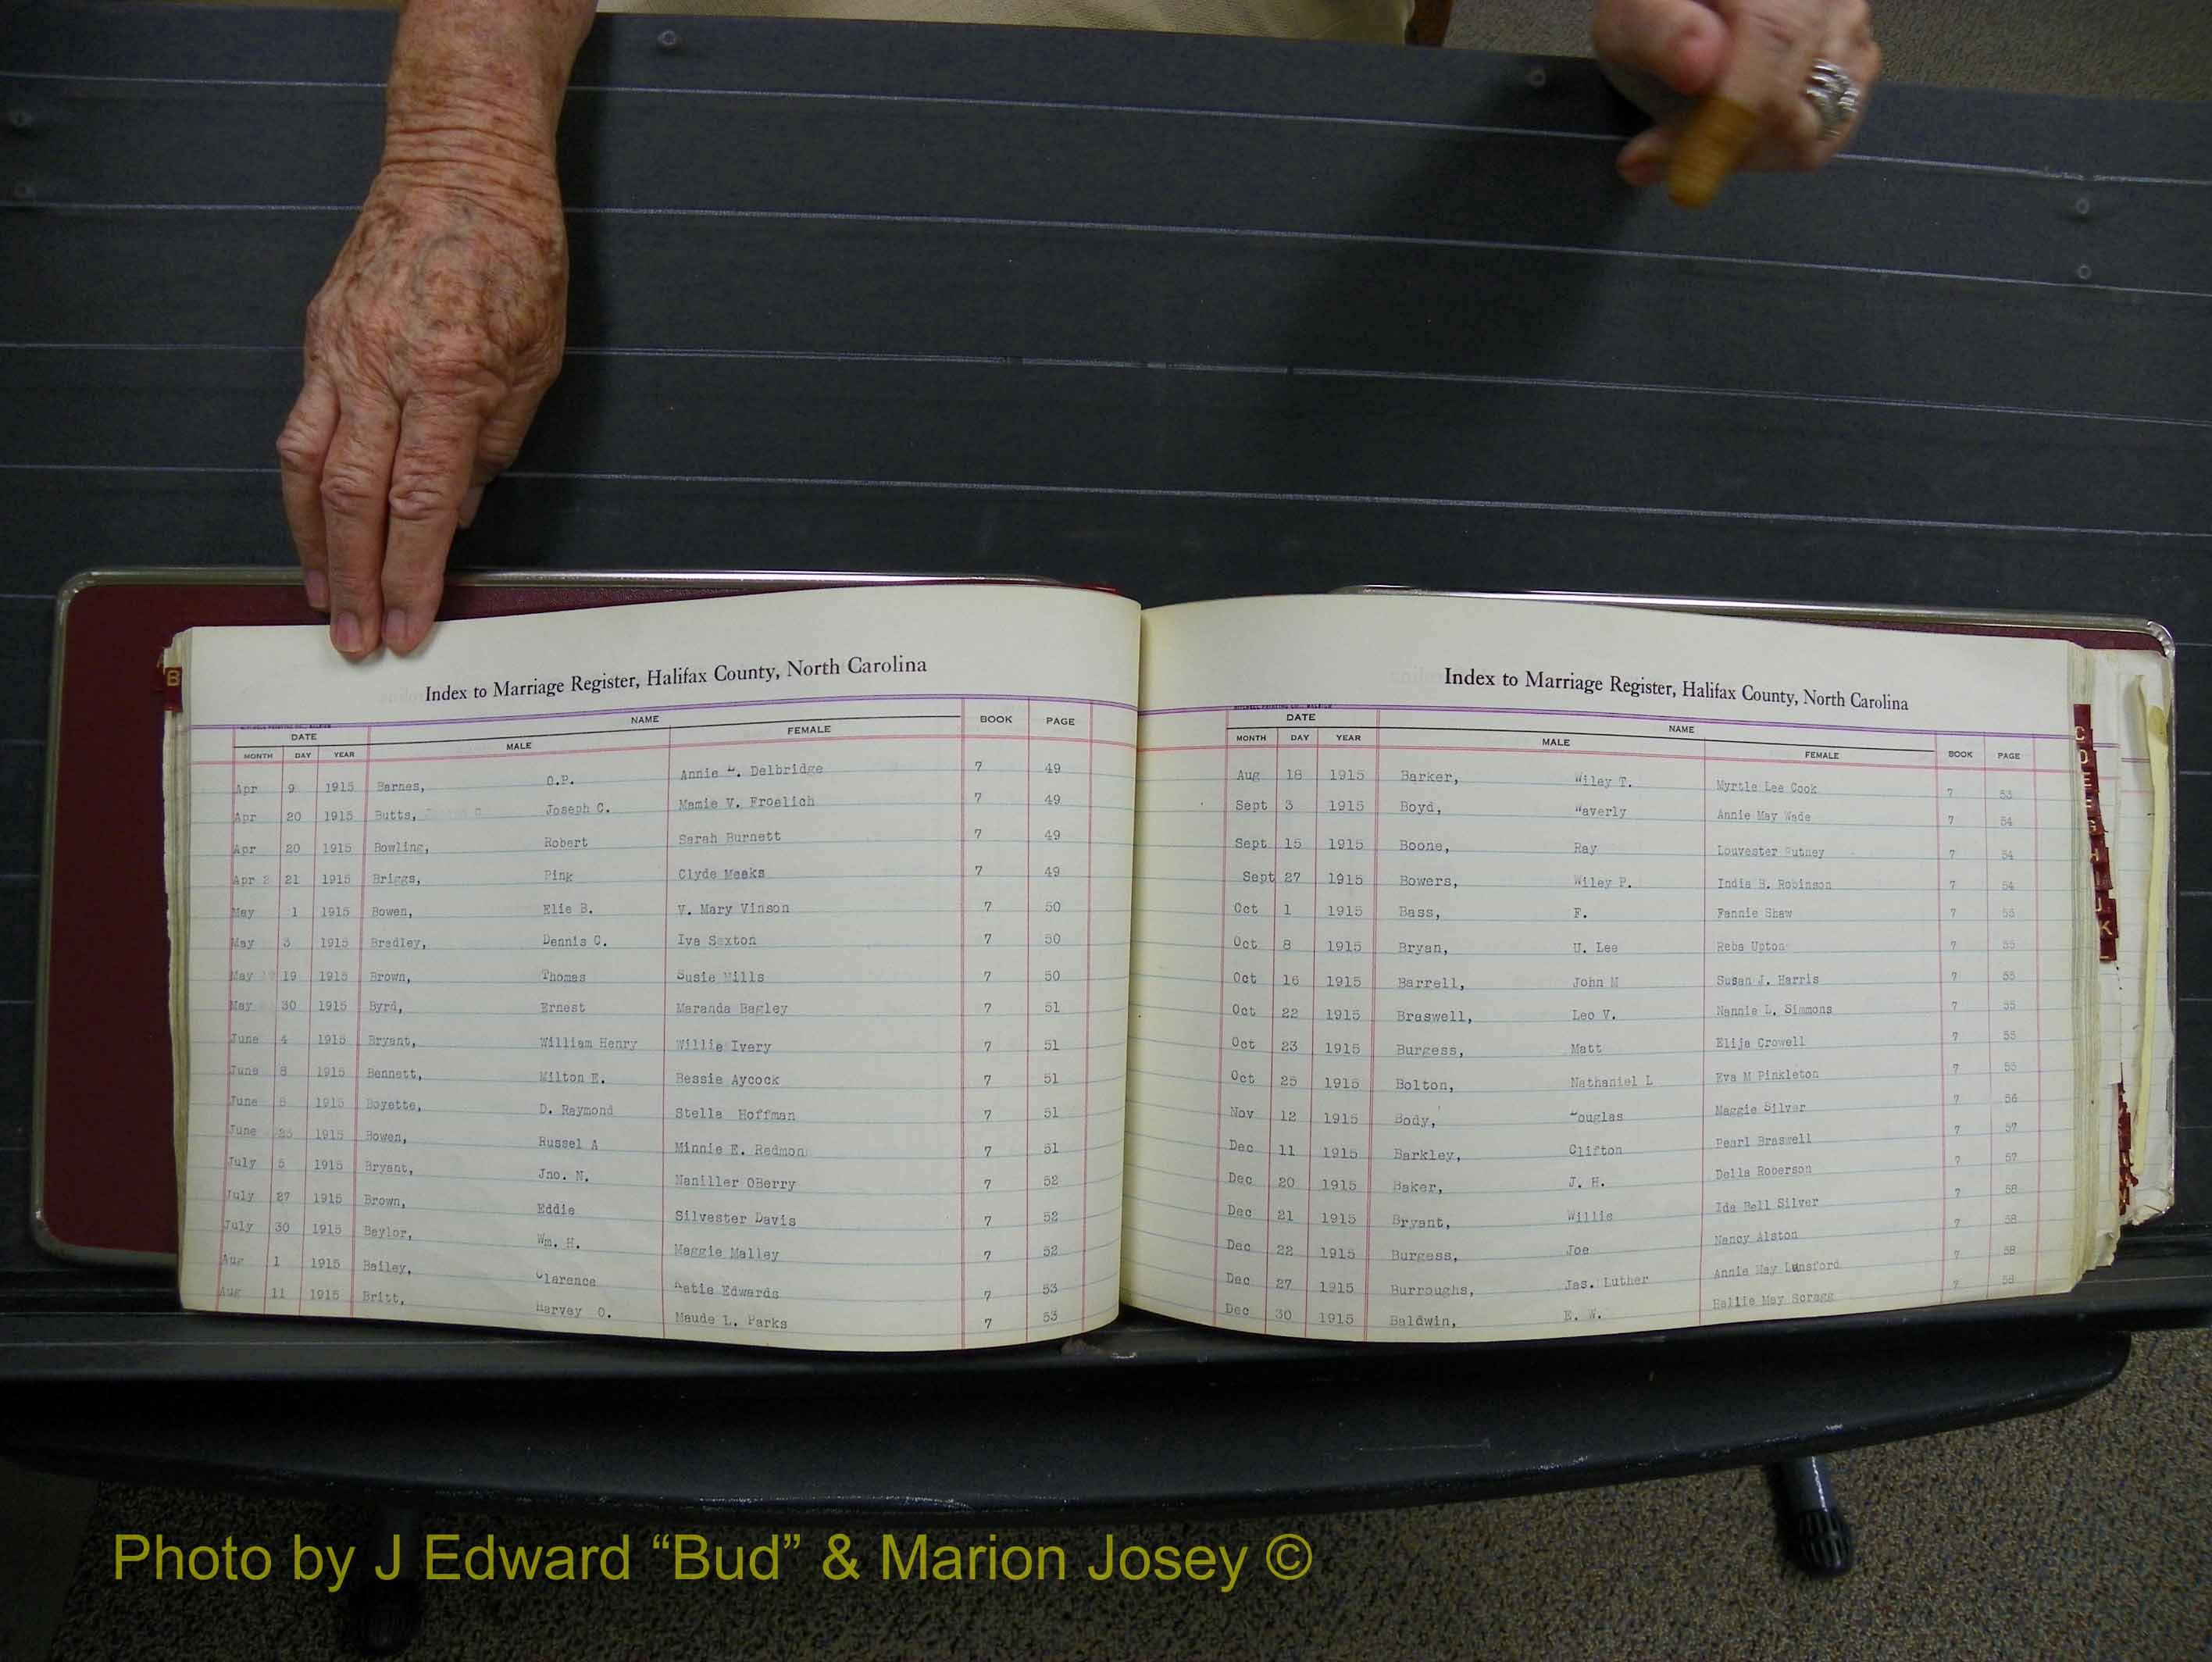 B
Index to Marriage Register, Halifax County, North Carolina
DATE NAME BOOK PAGE
MONTH DAY YEAR MALE FEMALE
Apr 9 1915 Barnes, O.P. Annie Delbridge 7 49
Apr 20 1915 Butts, Joseph C. Mamie V. Froelich 7 49
Apr 20 1915 Bowling, Robert Sarah Burnett 7 49
Apr 21 1915 Briggs, Pink Clyde Meeks 7 49
May 1 1915 Bowen, Elie B. V. Mary Vinson 7 50
May 3 1915 Bradley, Dennis C. Iva Sexton 7 50
May 19 1915 Brown, Thomas Susie Mills 7 50
May 30 1915 Byrd, Ernest Maranda Bagley 7 51
June 4 1915 Bryant, William Henry Willie Ivery 7 51
June 8 1915 Bennett, Milton E. Bessie Aycock 7 51
June 1915 Boyette, D. Raymond Stella Hoffman 7 51
June 25 1915 Bowen, Russel A Minnie E. Redmon 7 51
July 5 1915 Bryant, Jno. N. Naniller OBerry 7 52
July 27 1915 Brown, Eddie Silvester Davis 7 52
July 30 1915 Baylor, Wm. H. Maggie Malley 7 52
Aug 1 1915 Bailey, Clarence Katie Edwards 7 53
Aug 11 1915 Britt, Harvey O. Maude L. Parks 7 53
Index to Marriage Register, Halifax County, North Carolina
DATE NAME BOOK PAGE
MONTH DAY YEAR MALE FEMALE
Aug 18 1915 Barker, Wiley T. Myrtle Lee Cook 7 53
Sept 3 1915 Boyd, Waverly Annie May Wade 7 54
Sept 15 1915 Boone, Ray Louvester 7 54
Sept 27 1915 Bowers, Wiley P. India B. Robinson 7 54
Oct 1 1915 Bass, F. Fannie Shaw 7 55
Oct 8 1915 Bryan, U. Lee Reba Upton 7 55
Oct 16 1915 Barrell, John M Susan J. Harris 7 55
Oct 22 1915 Braswell, Leo V. Nannie L. Simmons 7 55
Oct 23 1915 Burgess, Matt Elija Crowell 7 55
Oct 25 1915 Bolton, Nathaniel L Eva M Pinkleton 7 55
Nov 12 1915 Body, Douglas Maggie Silver 7 56
Dec 11 1915 Barkley, Clifton Pearl Braswell 7 57
Dec 20 1915 Baker, J. H. Della Roberson 7 57
Dec 21 1915 Bryant, Willie Ida Bell Silver 7 58
Dec 22 1915 Burgess, Joe Nancy Alston 7 58
Dec 27 1915 Burroughs, Jas. Luther Annie May Lunsford 7 58
Dec 30 1915 Baldwin, E. W. Hallie May Scragg 7 58
C
D
E
H
I
J
K
Photo by J Edward “Bud” & Marion Josey ©